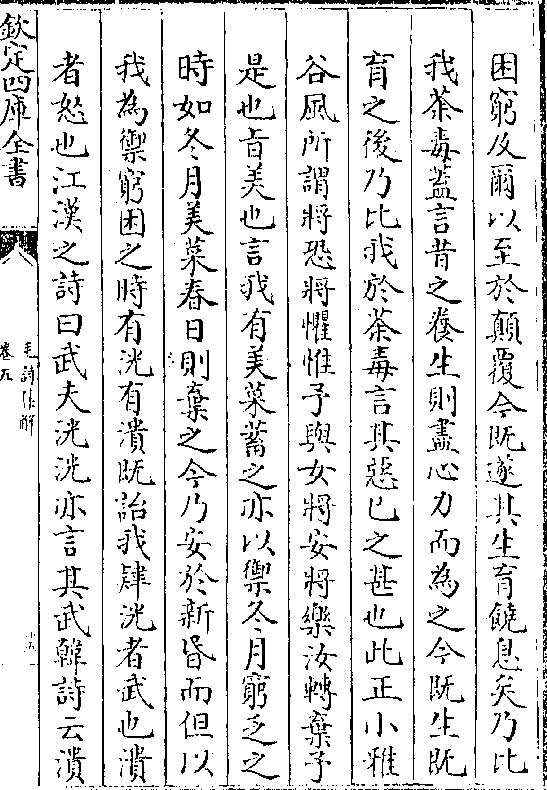 困窮及爾以至於顛覆今既遂其生育饒息矣乃比
我荼毒蓋言昔之養生則盡心力而為之今既生既
育之後乃比我於荼毒言其惡已之甚也此正小雅
谷風所謂將恐將懼惟予與女將安將樂汝轉棄予
是也旨美也言我有美菜蓄之亦以禦冬月窮乏之
時如冬月美菜春日則棄之今乃安於新昏而但以
我為禦窮困之時有洸有潰既詒我肄洸者武也潰
者怒也江漢之詩曰武夫洸洸亦言其武韓詩云潰
欽定四庫全書
毛詩集解
卷五
十五